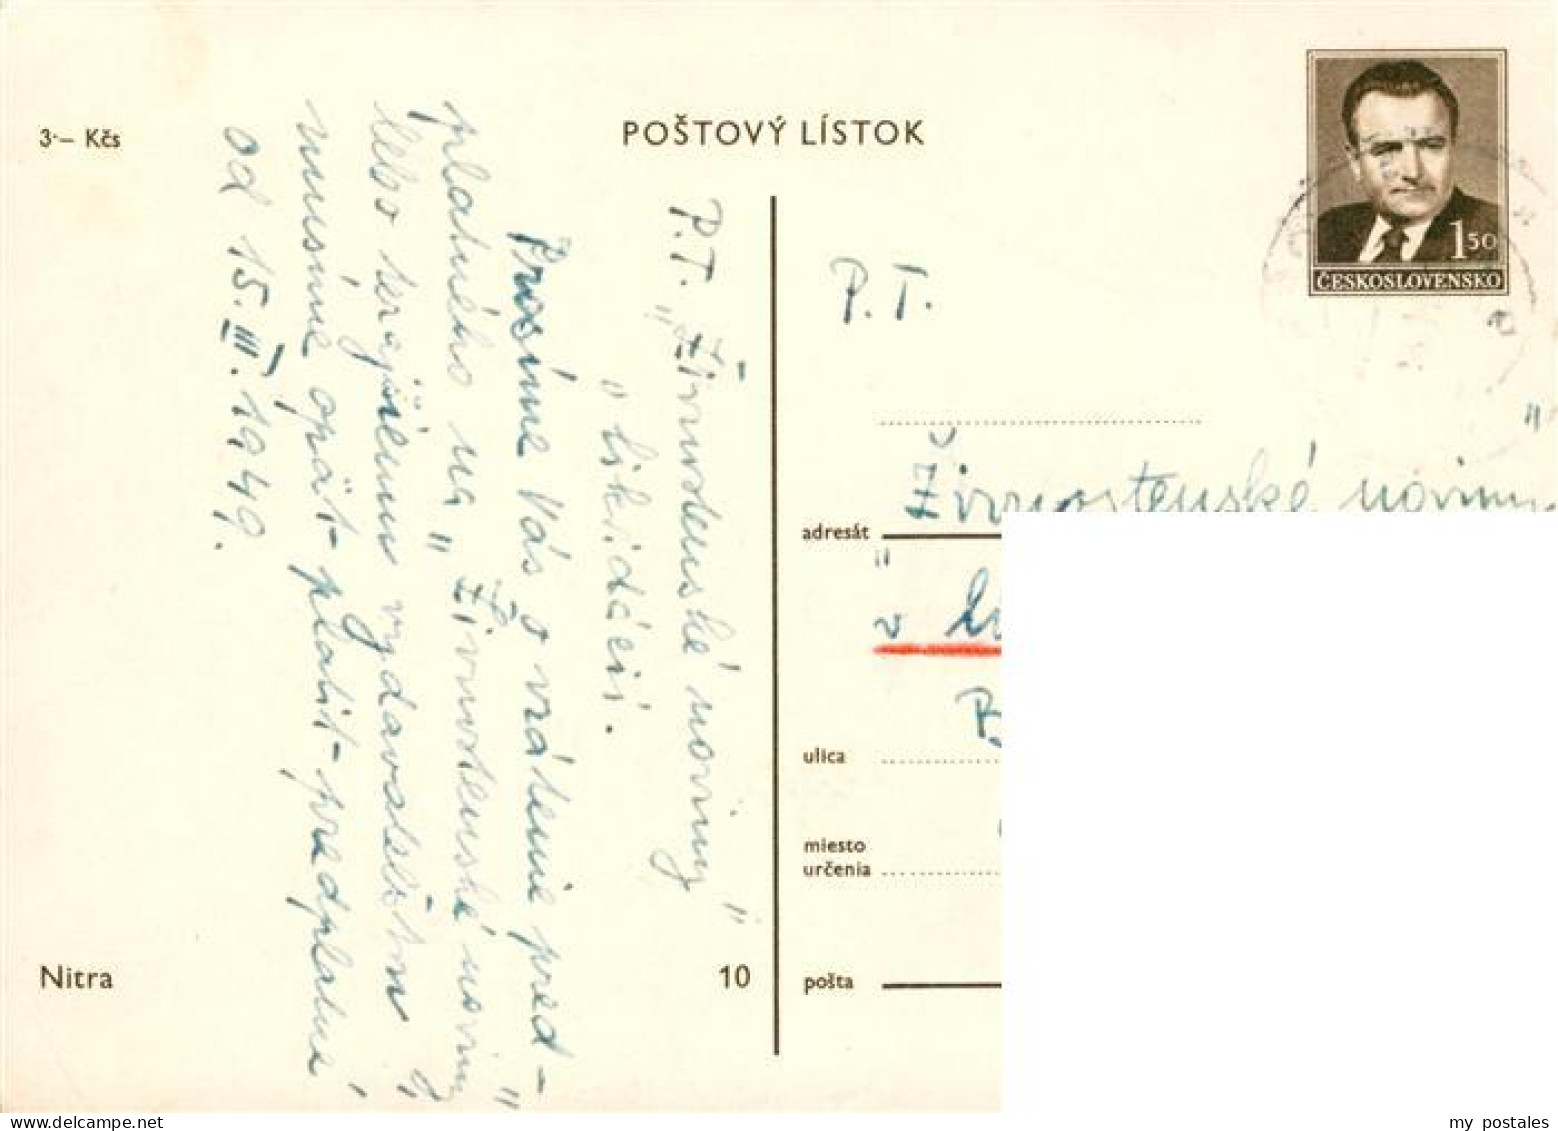 3·– Kčs
POŠTOVÝ LÍSTOK
1 50
ČESKOSLOVENSKO
P.T. „Živnostenské noviny"
„likvidácii.
Prosíme Vás o vrátenie pred-
platného na „Živnostenské noviny"
lebo terajšiemu vydavateľstvu
musíme opäť platiť predplatné
od 15.III.1949.
P.T.
Živnostenské noviny
adresát
v
ulica
miesto
určenia
pošta
Nitra
10
my postales